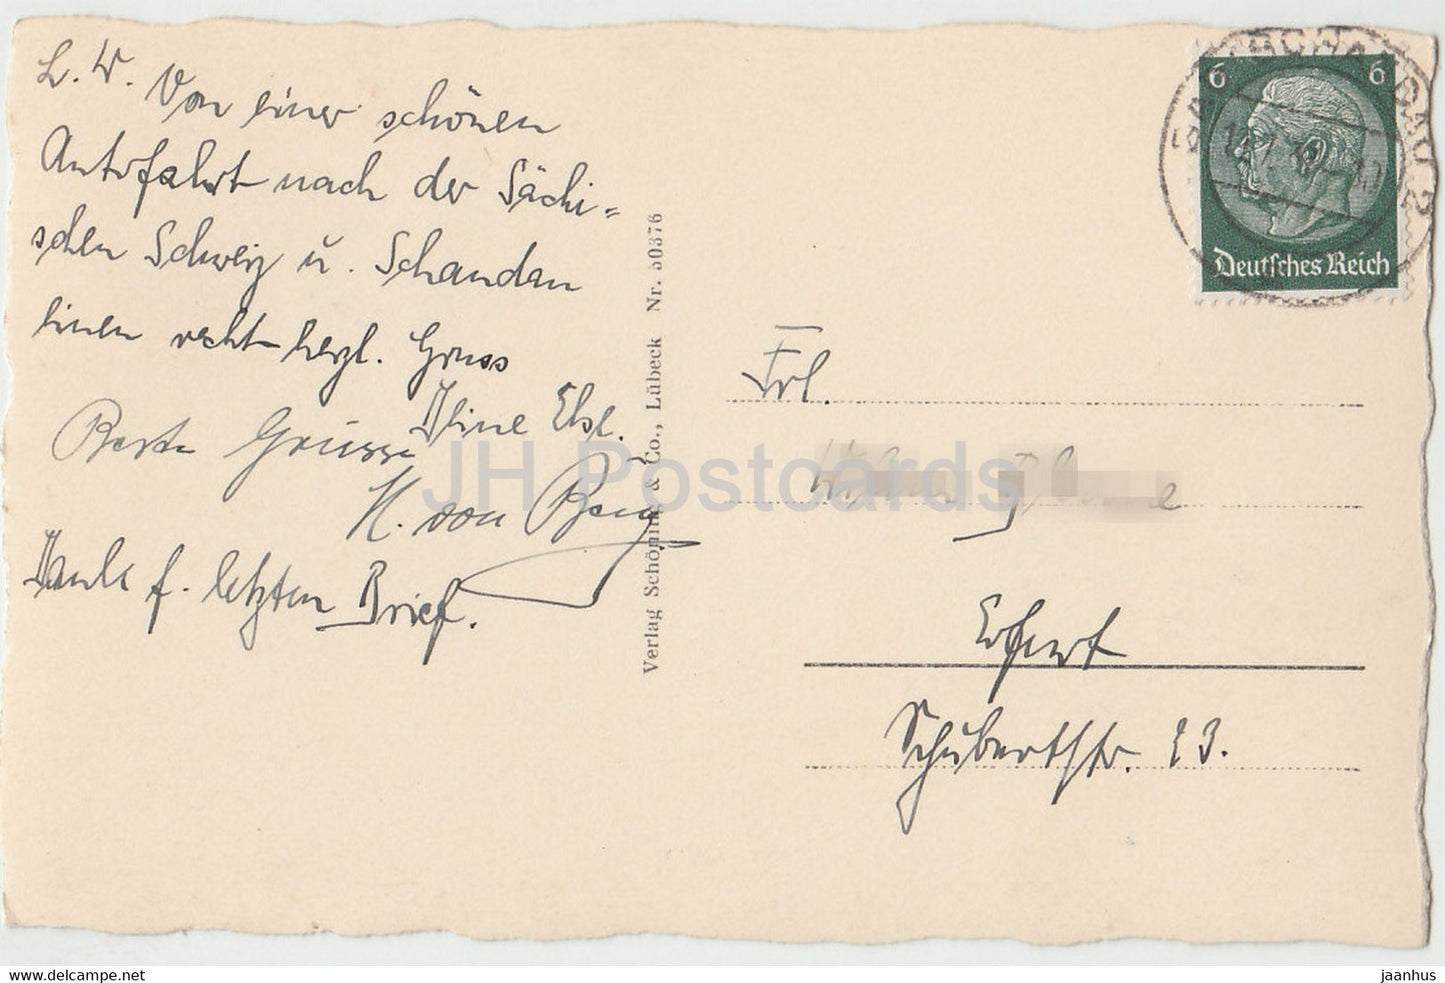 L. W. Von einer schönen
Autofahrt nach der Sächi=
schen Schweiz u. Schandau
einen recht herzl. Gruss
Deine Else.
Beste Grüsse
H. von Berg
Dank f. letzten Brief.
Verlag Schöning & Co., Lübeck Nr. 50376
6 6
Deutsches Reich
BAD SCHANDAU 2
Frl.
Erfurt
Schubertstr. 23.
JH Postcards
www.delcampe.net
jaanhus